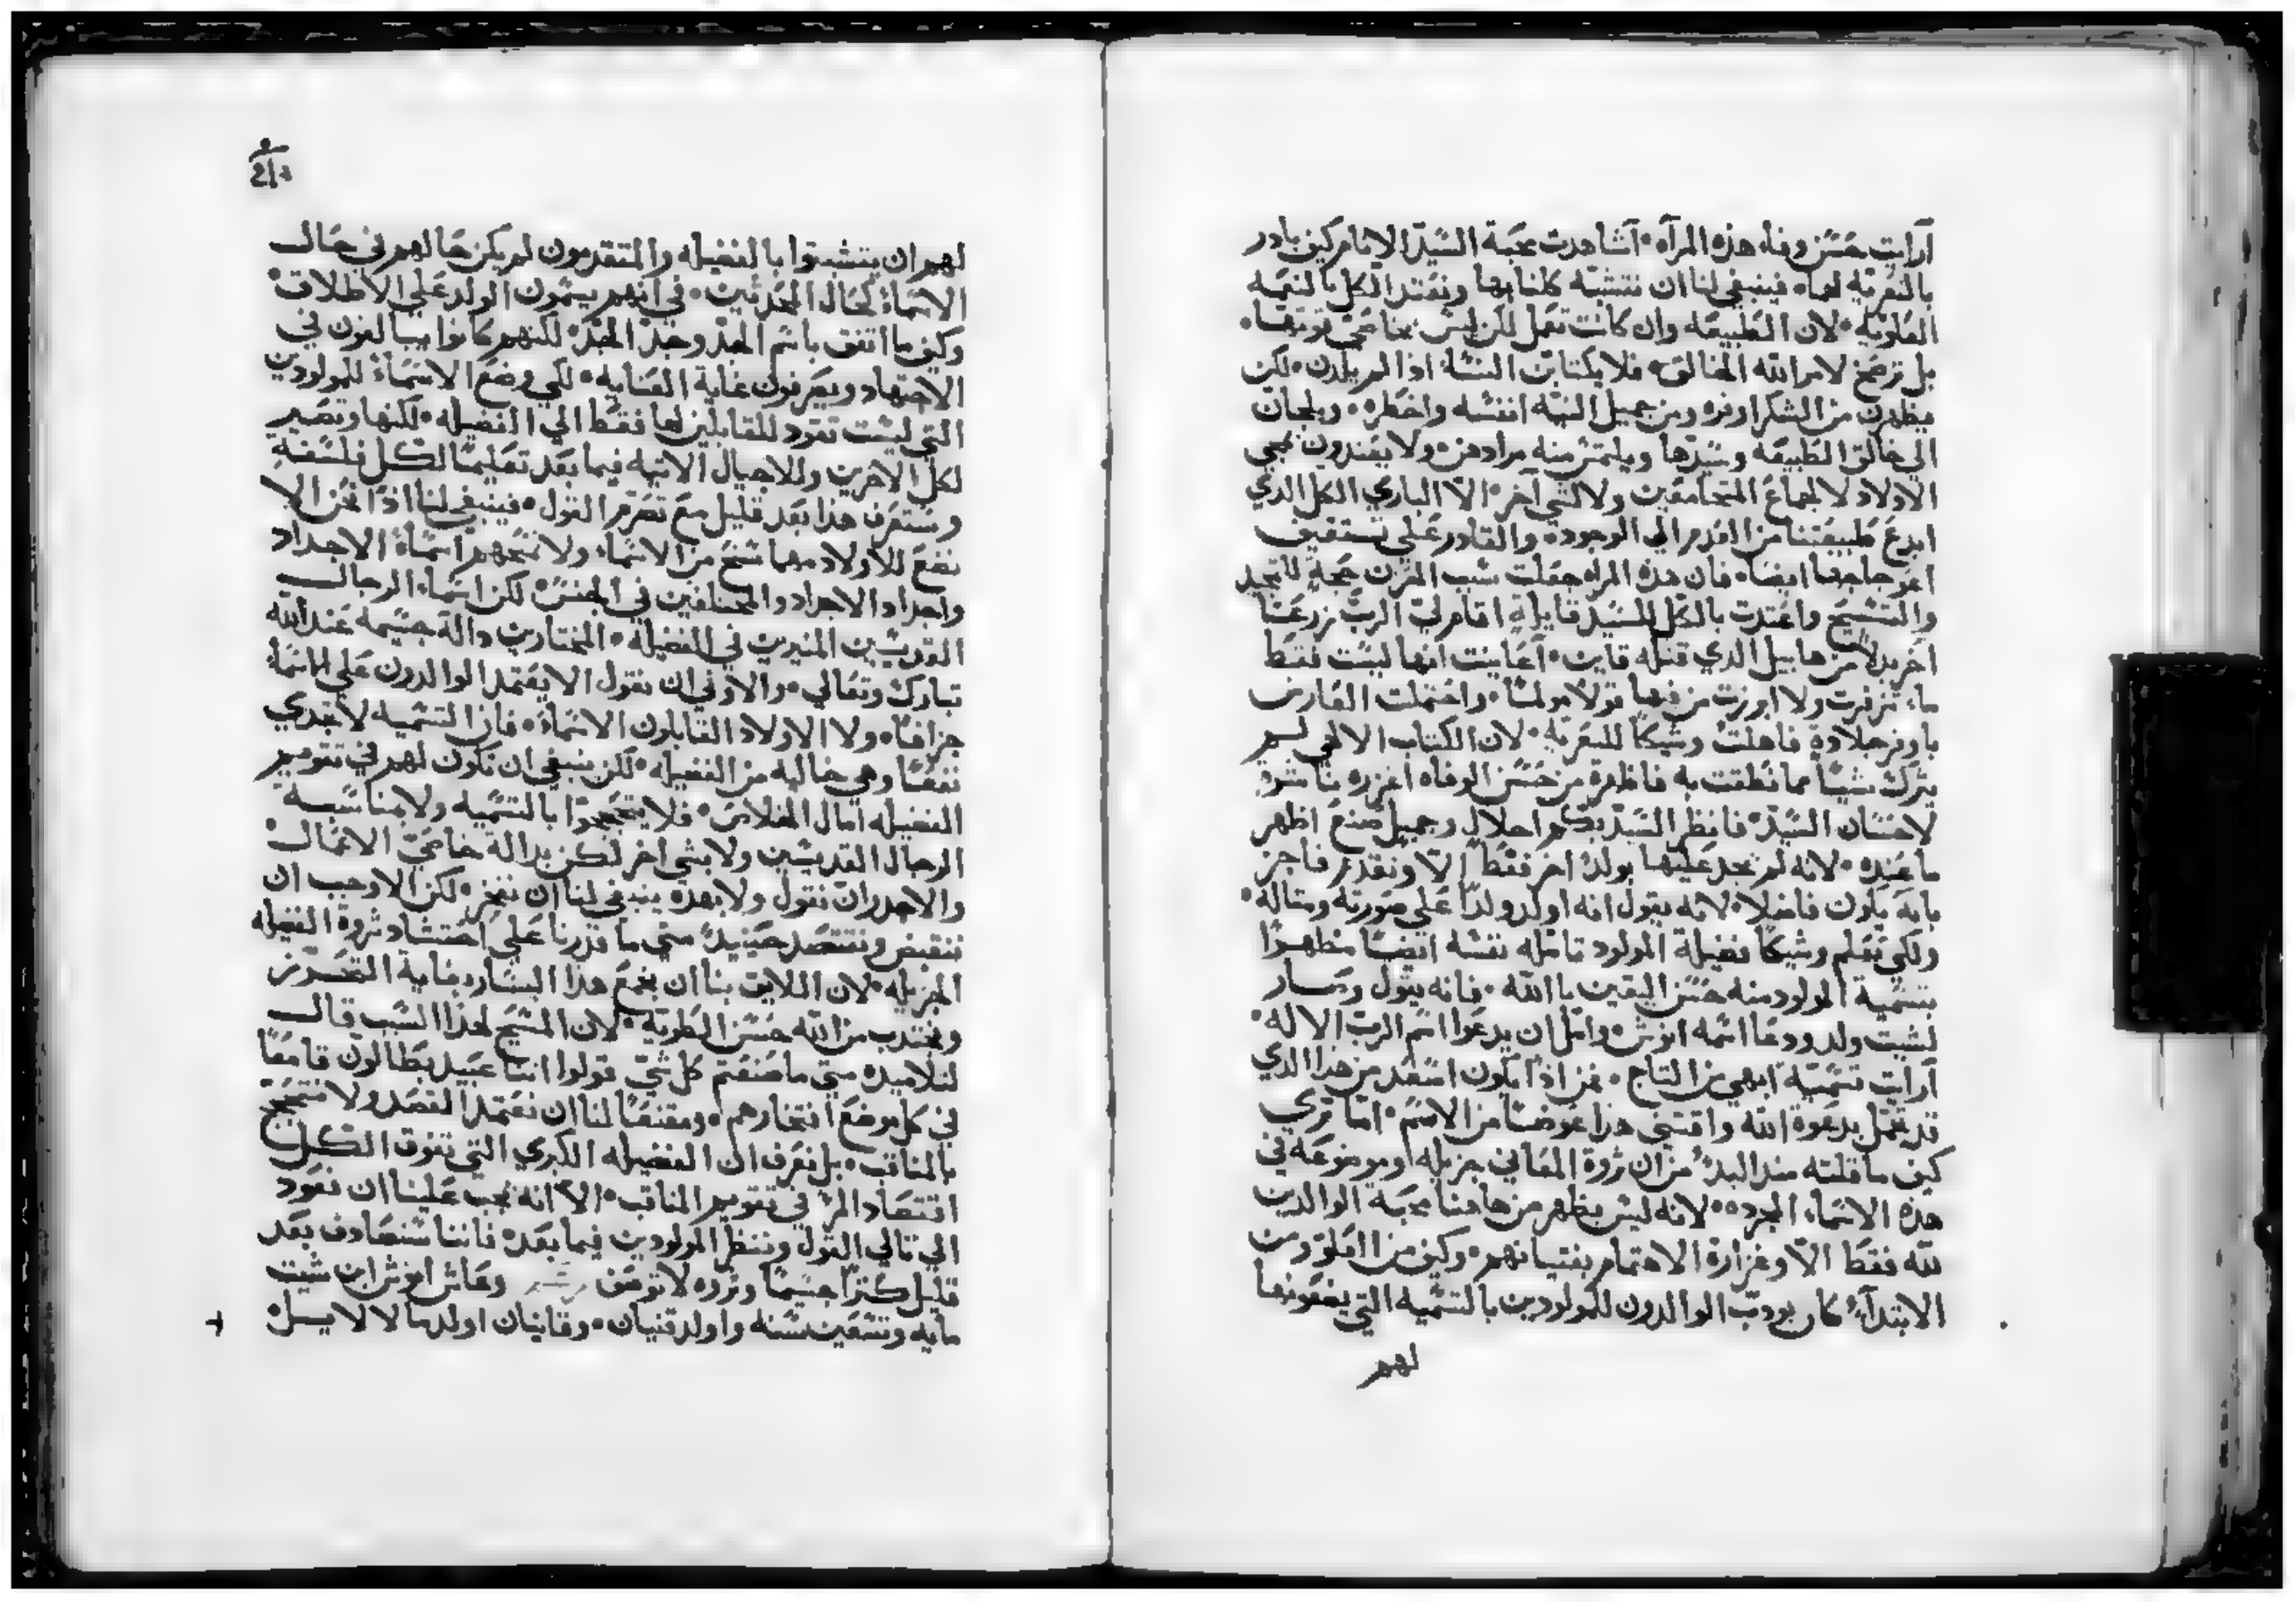 أرايت حسن وفاء هذه المرأه • أشاهدت محبة السيد الانام كيف بادر
بالتعزيه لها • فينبغي لنا ان نتشبه كلنا بها ونعتد الكل بالنعمه
العلويه • لان الطبيعه وان كانت تعمل لكن ليس بخاصي قوتها •
بل ترضخ لامر الله الخالق • فلا يكتابن النساء اذا لم يلدن • لكن
يظهرن من الشكر اوفره ومن جميل النيه انفسه واخطره • ويلجان
الي خالق الطبيعه وسيدها ويلتمسن منه مرادهن ولا يعتدون مجي
الاولاد لا لجماع المتجامعين ولا لشي آخر • الا الباري الكل الدي
ابدع طبيعتنا من العدم الي الوجوده والقادر علي تسقيف
اعوجاجها ايضا • فان هذه المراه جعلت سبب الحزن حجة للتمجيد
والتسبيح واعتدت بالكل للسيد قايلة اقام لي الرب زرعا
اخر بدلا من هابيل الدي قتله قاين • أعاينت انها ليست فقط
ما تزفرت ولا ابرزت من فمها قولا مولما • واحتملت العارض
باوفر جلادة فاهلت وشيكا للتعزيه • لان الكتاب الالهي لم
يترك شيا مما نطقت به فاظهرة من حسن الوفاء اغزره ناشرة
لاحسان السيد • فانظر السيد بكم احلال وجميل صنع اظهر
ما عنده • لانه لم يجد عليها بولد اخر فقط الا وتقدم فاخبر
بانه يكون فاضلا • لانه يقول انه اولد ولدا علي صورته ومثاله •
ولكي تعلم وشيكا فضيلة المولود تامله نفسه ايضا مظهرا
بتسمية المولود منه حسن اليقين باالله • فانه يقول وصار
لشيت ولد ودعا اسمه انوش • وامل ان يدعوا اسم الرب الاله •
أرايت تسمية ابهي من التاج • فمن اذا يكون اسعد من هذا الدي
قد تجمل بدعوة الله واقتني هذا عوضا من الاسم • اما تري
كيف ما قلته مند البدء من ان ثروة المعاني جزيله وموضوعه في
هذه الاسماء المجرده • لانه ليس يظهر من هاهنا محبة الوالدين
لله فقط الا وغزارة الاهتمام بفتيانهم • وكيف من العلو ومن
الابتدآء كان يودب الوالدون للمولودين بالتسميه التي يضعونها
لهم
لهم ان يتشبتوا بالفضيله والمتقدمون لم يكن حالهم في حال
الاسماء كحال المحدثين • في انهم يسمون الولد علي الاطلاق •
وكيف ما اتفق باسم الجد وجد الجد • لكنهم كانوا يبالغون في
الاجتهاد ويصرفون غاية العنايه • لكي وضع الاسماء للمولودين
التي ليست تقود للقابلين لها فقط الي الفضيله • لكنها وتصير
لكل الاخرين وللاجيال الاتيه فيما بعد تعليما لكل فلسفة
وستعرف هذا بعد قليل مع تصرم القول • فينبغي لنا اذا نحن الا
نضع للاولاد مهما سنح من الاسماء ولا نمنحهم اسماء الاجداد
واجداد الاجداد والمختلفين في الجنس • لكن اسماء الرجال
القديسين المنيرين في الفضيله • المختارين دالة جسيمه عند الله
تبارك وتعالي • والاولي ان نقول الا يعتمد الوالدون علي الاسماء
جزافا • ولا الاولاد القابلون الاسماء • فان التسميه لا تجدي
نفعا وهي خاليه من الفضيله • لكن ينبغي ان تكون لهم في تقويم
الفضيله امال الخلاص • فلا يتبجحوا بالتسميه ولا بمناسبة
الرجال القديسين ولا بشي اخر لكن بدالة خاصي الاعمال •
والاجدر ان نقول ولا بهذه ينبغي لنا ان نفخر • لكن الاوجب ان
ننقبض ونقتصد حينيد • متي ما قدرنا علي احتشاد ثروة الفضيله
الجزيله • لان اللايق بنا ان نجمع هذا اليسار بغاية التحرز
ونجتدب من الله حسن الطويه • لان المسيح لهذا السبب قال
لتلاميذه متي ما صنعتم كل شي قولوا اننا عبيد بطالون قامعا
في كل موضع افتخارهم • ومقنعا لنا ان نعتمد القصد ولا نتبجح
بالمناقب • بل نعرف ان الفضيله الكبري التي تفوق الكل
اقتصاد المرء في تقويم المناقب • الا انه يجب علينا ان نعود
الي تالي القول وننظر المولودين فيما بعد • فاننا سنصادف بعد
قليل كنزا جسيما وثروه لا توصف وعاش انوش ابن شيت
مايه وتسعين سنه واولد قنيان • وقاينان اولد مالالاييل •